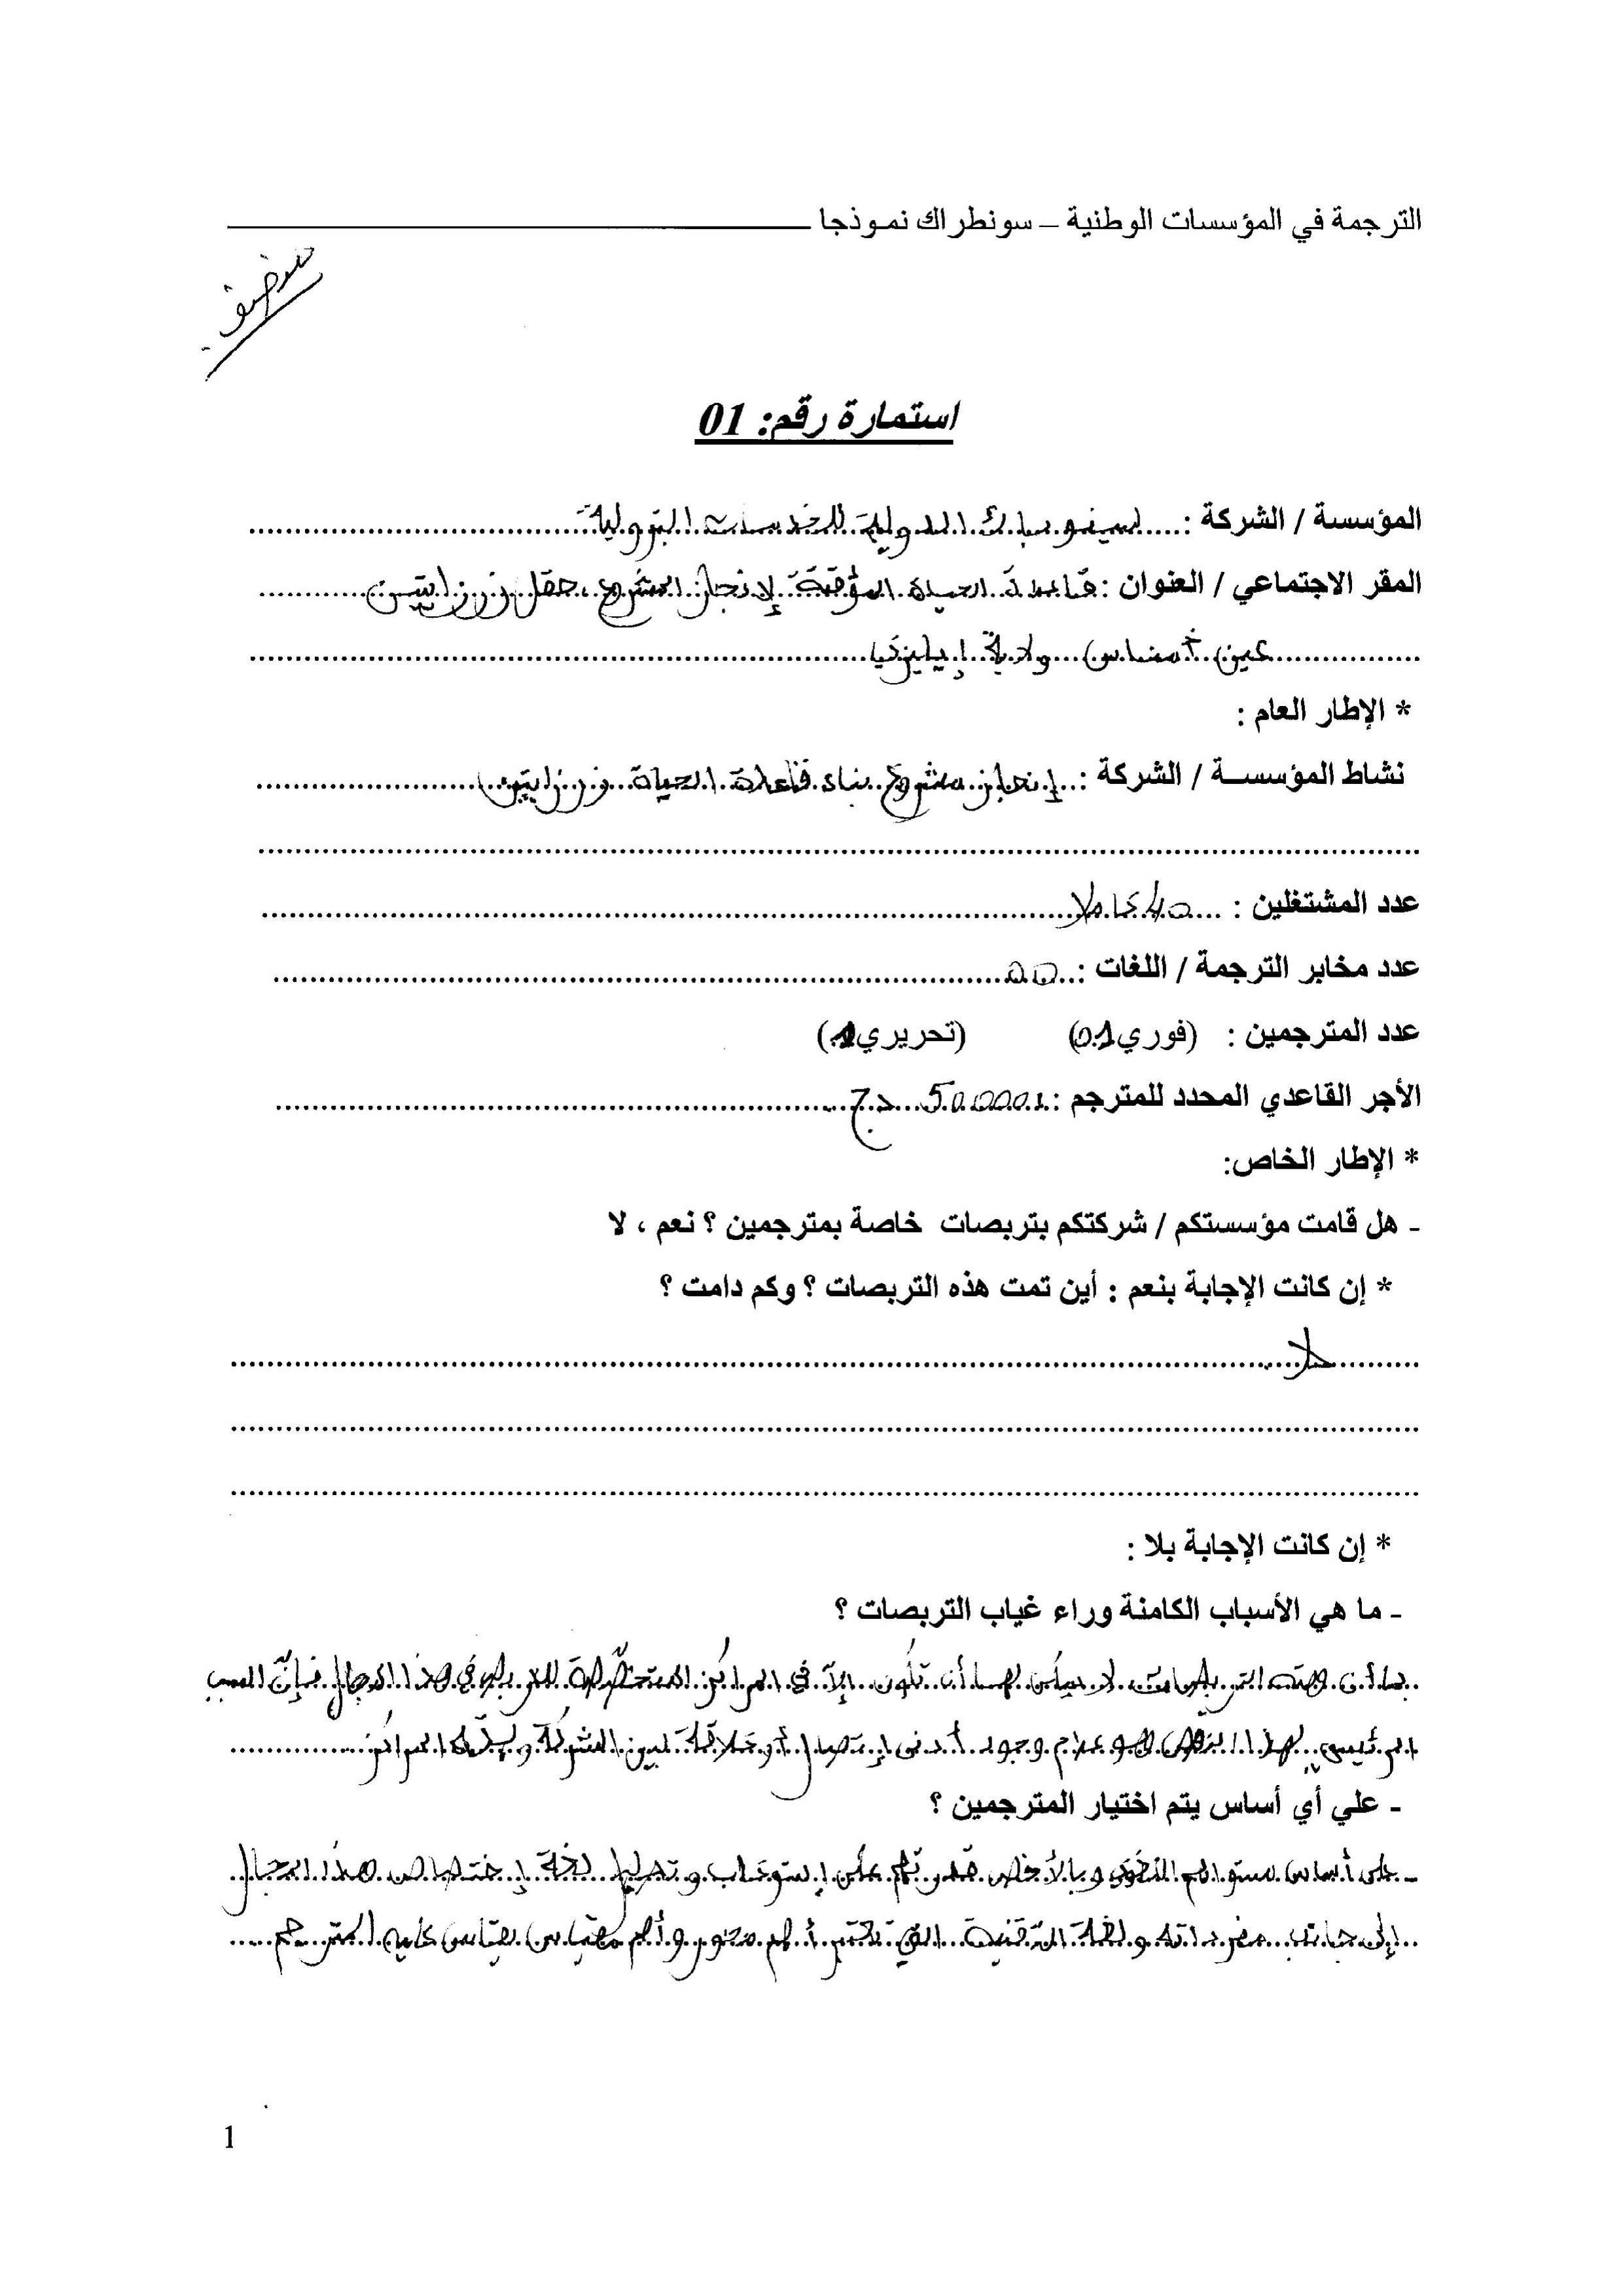 الترجمة في المؤسسات الوطنية – سونطراك نموذجا
استمارة رقم: 01
المؤسسة / الشركة : سينوباك الدولية للخدمات البترولية
المقر الاجتماعي / العنوان : قاعدة الحياة المؤقتة لإنجاز المشروع، حقل زرزايتين
عين أمناس ولاية إيليزي
* الإطار العام :
نشاط المؤسسة / الشركة : إنجاز مشروع بناء قاعدة الحياة زرزايتين
عدد المشتغلين : 40 عاملا
عدد مخابر الترجمة / اللغات : 00
عدد المترجمين : (فوري 01) (تحريري)
الأجر القاعدي المحدد للمترجم : دج
* الإطار الخاص:
- هل قامت مؤسستكم / شركتكم بتربصات خاصة بمترجمين ؟ نعم ، لا
* إن كانت الإجابة بنعم : أين تمت هذه التربصات ؟ وكم دامت ؟
لا
* إن كانت الإجابة بلا :
- ما هي الأسباب الكامنة وراء غياب التربصات ؟
بما أن هذه التربصات لا يمكن لها أن تكون إلا في المراكز المتخصصة للتربص في هذا المجال فإن السبب
الرئيسي لهذا النقص هو عدم وجود أدنى إتصال أو علاقة بين الشركة و هذه المراكز
- علي أي أساس يتم اختيار المترجمين ؟
- على أساس مستواهم اللغوي و بالأخص قدرتهم على إستوعاب و تحليل لغة إختصاص هذا المجال
إلى جانب مفرداته و لغة التقنية التي تعتبر أهم محور و أهم مقياس يقاس عليه المترجم
1